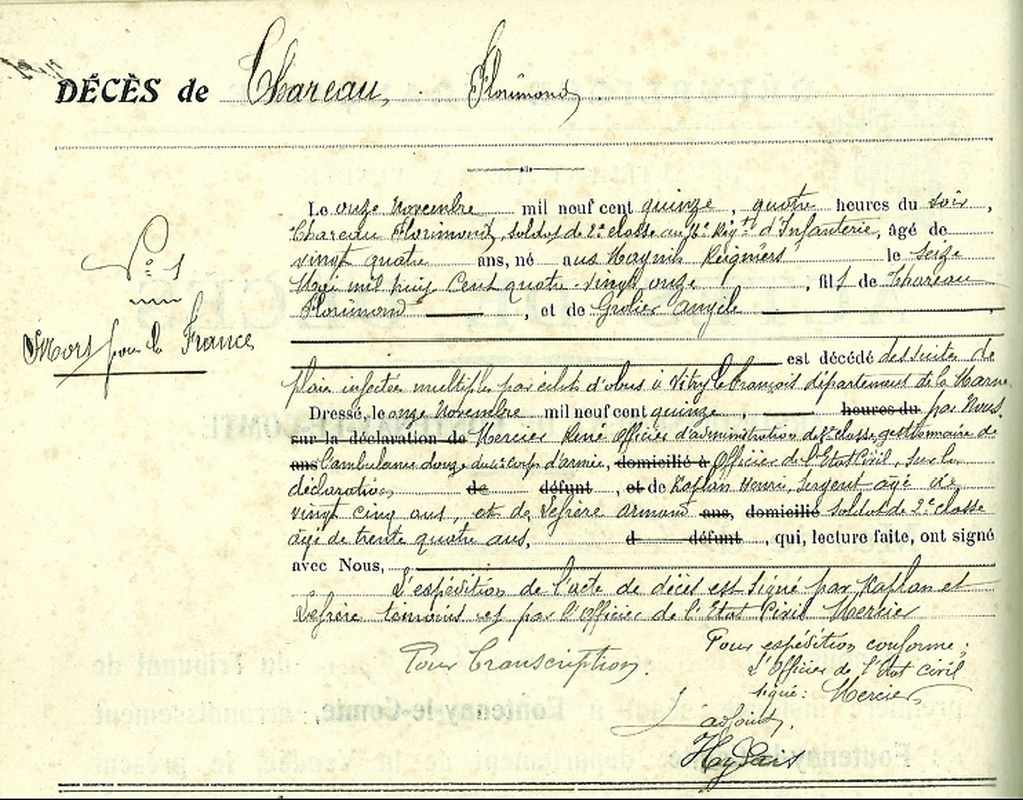 DÉCÈS de Chareau, Florimond
N° 1
Mort pour la France
Le onze Novembre mil neuf cent quinze, quatre heures du soir,
Chareau Florimond, soldat de 2e classe au Régt d'Infanterie, âgé de
vingt quatre ans, né aux Magnils Reigniers le seize
Mai mil huit cent quatre-vingt onze, fils de Chareau
Florimond, et de Grolier Angèle,
est décédé des suites de
plaie infectée multiple par éclat d'obus à Vitry le François, département de la Marne
Dressé, le onze Novembre mil neuf cent quinze, heures du par Nous,
sur la déclaration de Mercier René Officier d'administration de classe, gestionnaire de
ans l'ambulance douze du 4e corps d'armée, domicilié à Officier de l'Etat Civil, sur la
déclaration de défunt, et de Kaplan Henri, Sergent âgé de
vingt cinq ans, et de Lefrère Armand ans, domicilié soldat de 2e classe
âgé de trente quatre ans, d défunt, qui, lecture faite, ont signé
avec Nous,
L'expédition de l'acte de décès est signé par Kaplan et
Lefrère témoins et par l'Officier de l'Etat Civil Mercier
Pour transcription
Pour expédition conforme;
L'Officier de l'Etat civil
signé: Mercier
adjoint,